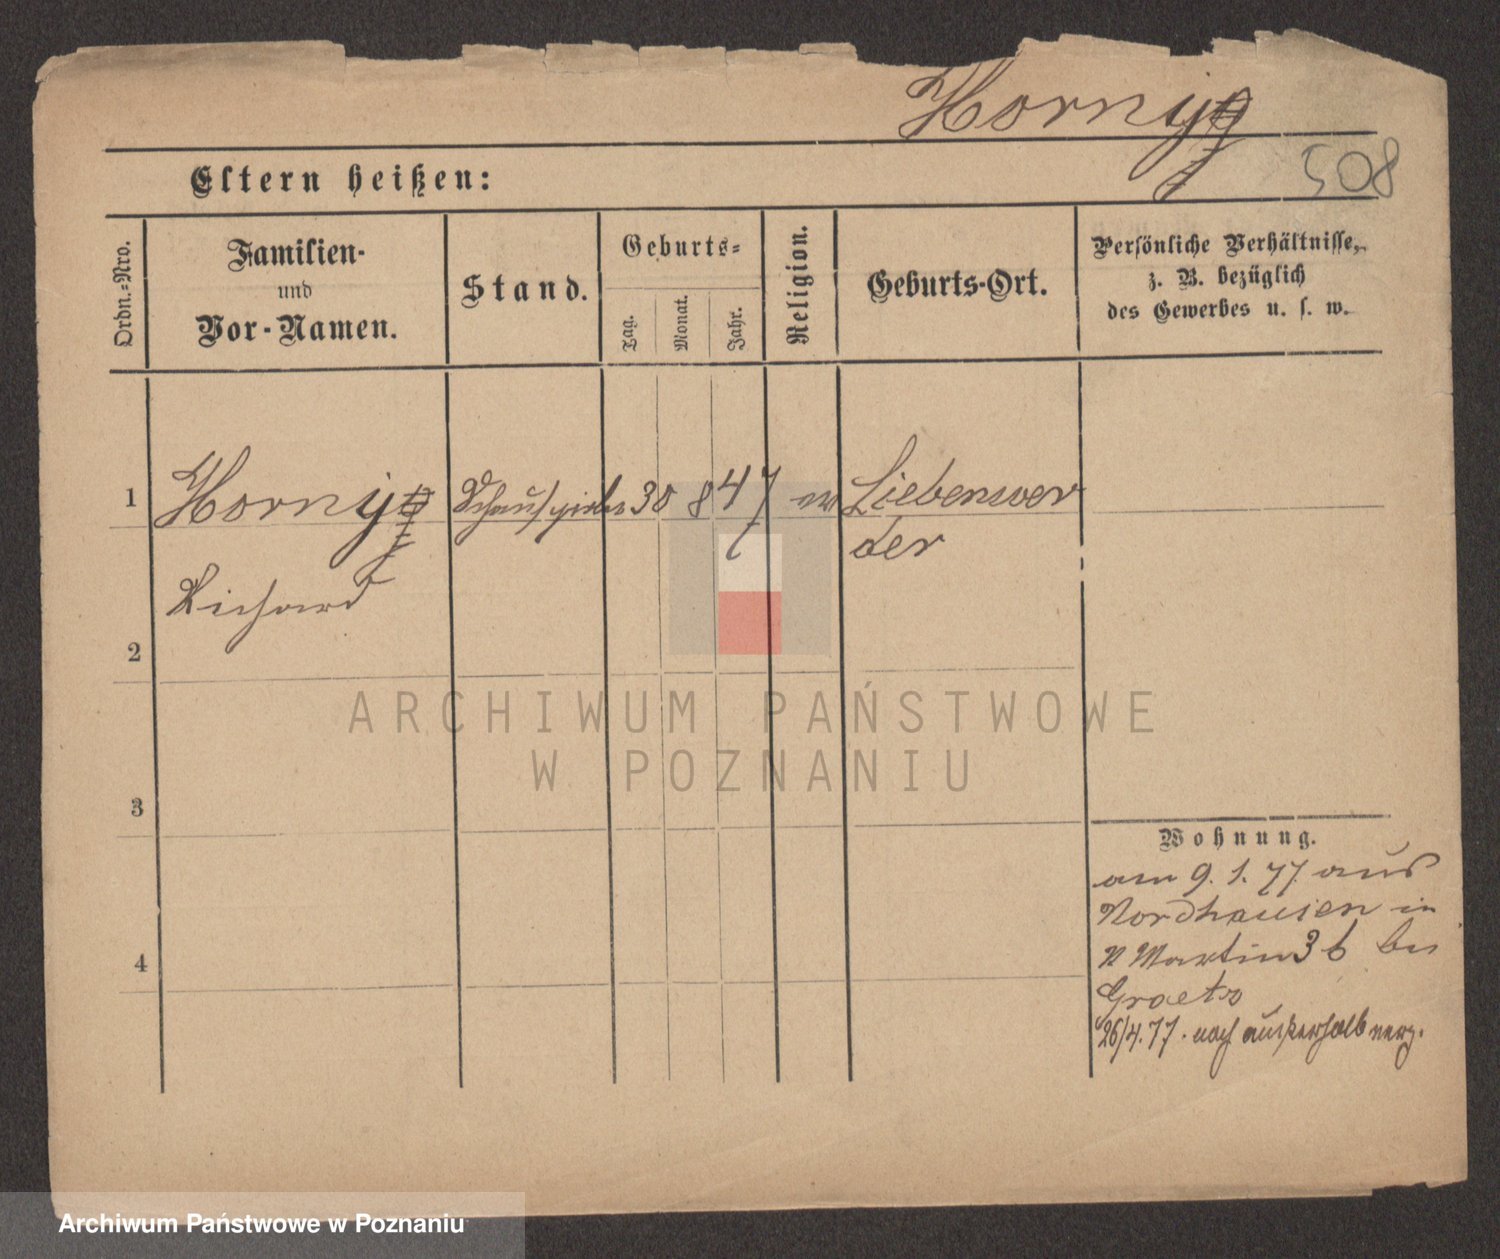 Hornig
508
Eltern heißen:
Ordn.-Nro.
Familien-
und
Vor-Namen.
Stand.
Geburts-
Tag.
Monat.
Jahr.
Religion.
Geburts-Ort.
Persönliche Verhältnisse,
z. B. bezüglich
des Gewerbes u. s. w.
1
Hornig Schauspieler 30 8 47 ev Liebenwer
der
Richard
2
ARCHIWUM PAŃSTWOWE
W POZNANIU
3
Wohnung.
am 9. 1. 77 aus
Nordhausen in
Martin 36 bei
4
Graetz
26/4. 77. nach außerhalb verz.
Archiwum Państwowe w Poznaniu